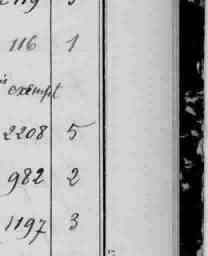 116 1
exempt
2208 5
982 2
1197 3